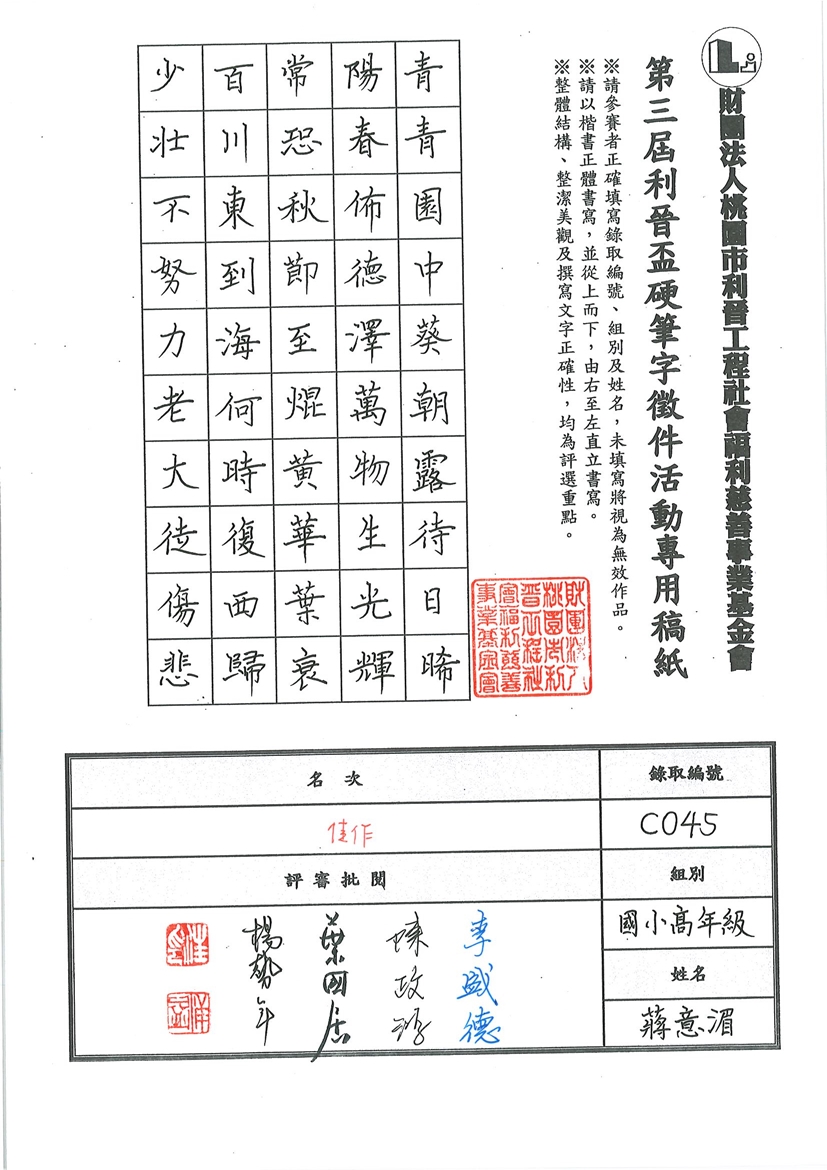 財團法人桃園市利晉工程社會福利慈善事業基金會
第三屆利晉盃硬筆字徵件活動專用稿紙
※請參賽者正確填寫錄取編號、組別及姓名，未填寫將視為無效作品。
※請以楷書正體書寫，並從上而下，由右至左直立書寫。
※整體結構、整潔美觀及撰寫文字正確性，均為評選重點。
財團法人
桃園市利
晉工程社
會福利慈善
事業基金會
青青園中葵朝露待日晞
陽春佈德澤萬物生光輝
常恐秋節至焜黃華葉衰
百川東到海何時復西歸
少壯不努力老大徒傷悲
錄取編號
C045
組別
國小高年級
姓名
蔣意湄
名次
佳作
評審批閱
李威德
葉國居
楊勢年